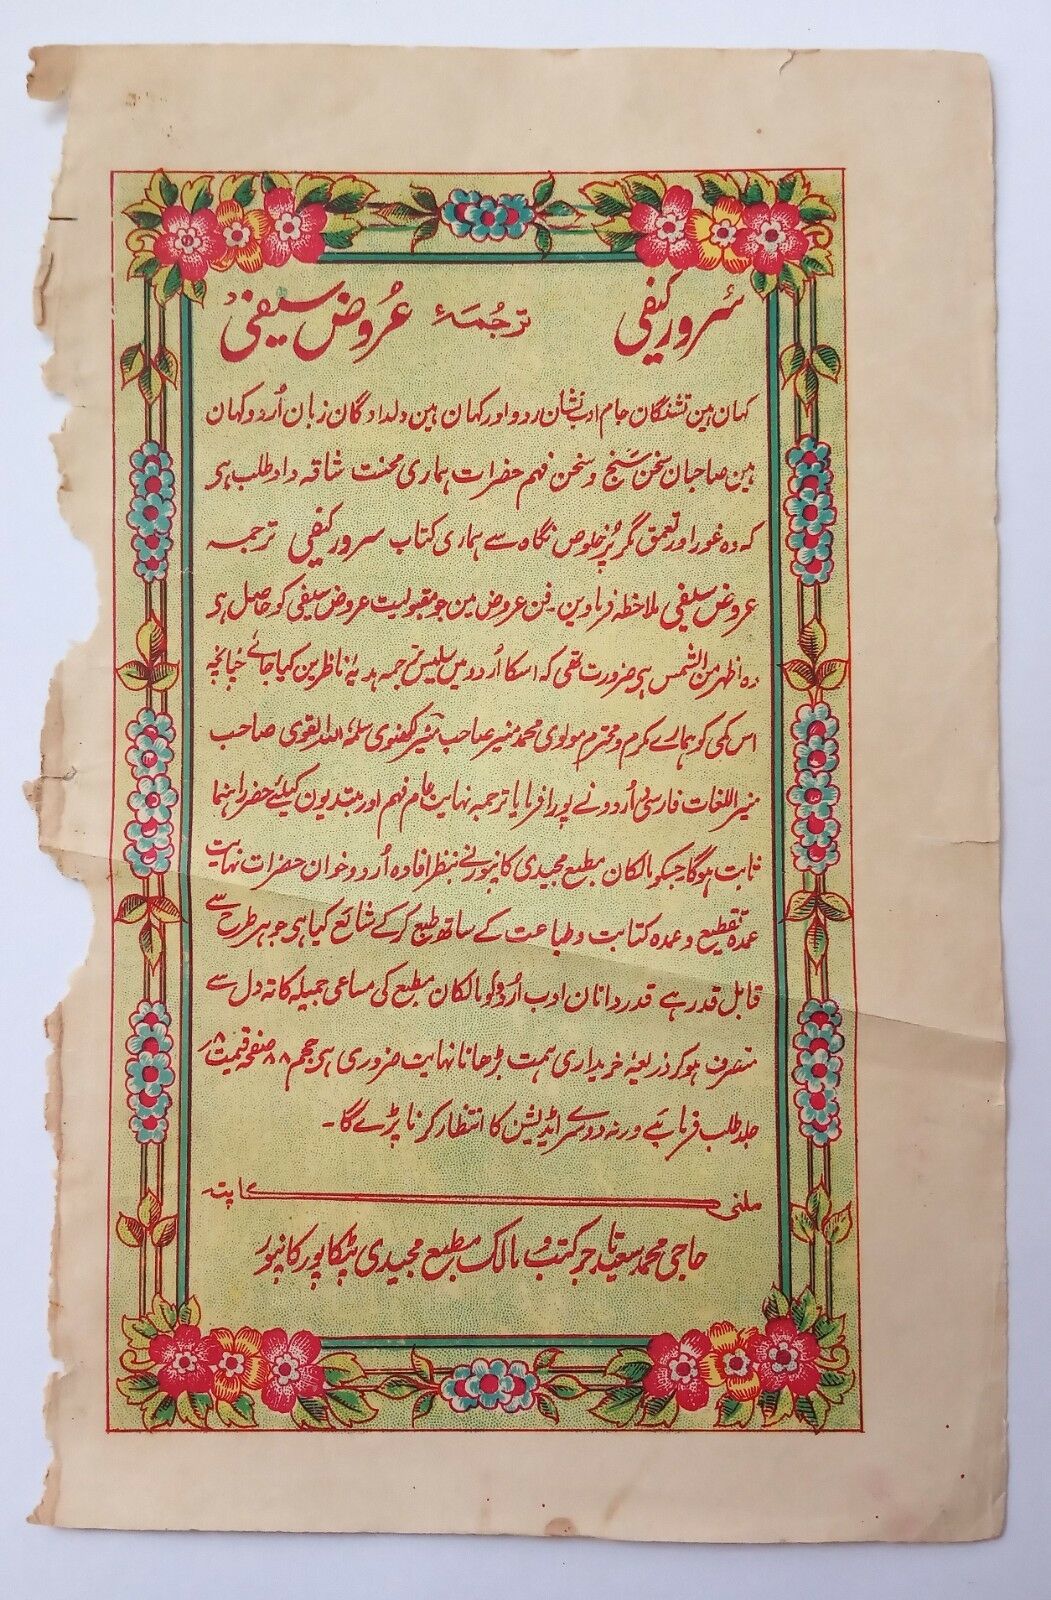 سرور کیفی ترجمۂ عروض سیفی
کہان ہین تشنگان جام ادب نشان اردو اور کہان ہین دلدادگان زبان اُردو کہان
ہین صاحبان سخن سنج و سخن فہم حضرات ہماری محنت شاقہ داد طلب ہی
کہ وہ غور اور تعمق گر پُر خلوص نگاہ سے ہماری کتاب سرور کیفی ترجمہ
عروض سیفی ملاحظہ فرماوین۔ فن عروض مین جو مقبولیت عروض سیفی کو حاصل ہی
وہ اظہر من الشمس ہی ضرورت تھی کہ اسکا اُردو میں سلیس ترجمہ ہدیۂ ناظرین کیا جائے چنانچہ
اس کمی کو ہمارے مکرم و محترم مولوی محمد منیر صاحب منیر لکھنوی سلمہ اللہ القوی صاحب
منیر اللغات فارسی اُردو نے پورا فرمایا ترجمہ نہایت عام فہم اور مبتدیون کیلئے خضر راہنما
ثابت ہوگا جسکو مالکان مطبع مجیدی کانپور نے بنظر افادہ اردو خوان حضرات نہایت
عمدہ تقطیع و عمدہ کتابت و طباعت کے ساتھ طبع کرکے شائع کیا ہی جو ہر طرح سے
قابل قدر ہے قدردانان ادب اُردو کو مالکان مطبع کی مساعی جمیلہ کا تہ دل سے
متصرف ہوکر ذریعۂ خریداری ہمت بڑھانا نہایت ضروری ہی حجم ۸۸ صفحہ قیمت ۸ر
جلد طلب فرمایئے ورنہ دوسرے اڈیشن کا انتظار کرنا پڑے گا۔
ملنے کا پتہ
حاجی محمد سعید تاجر کتب و مالک مطبع مجیدی پٹکاپور کانپور